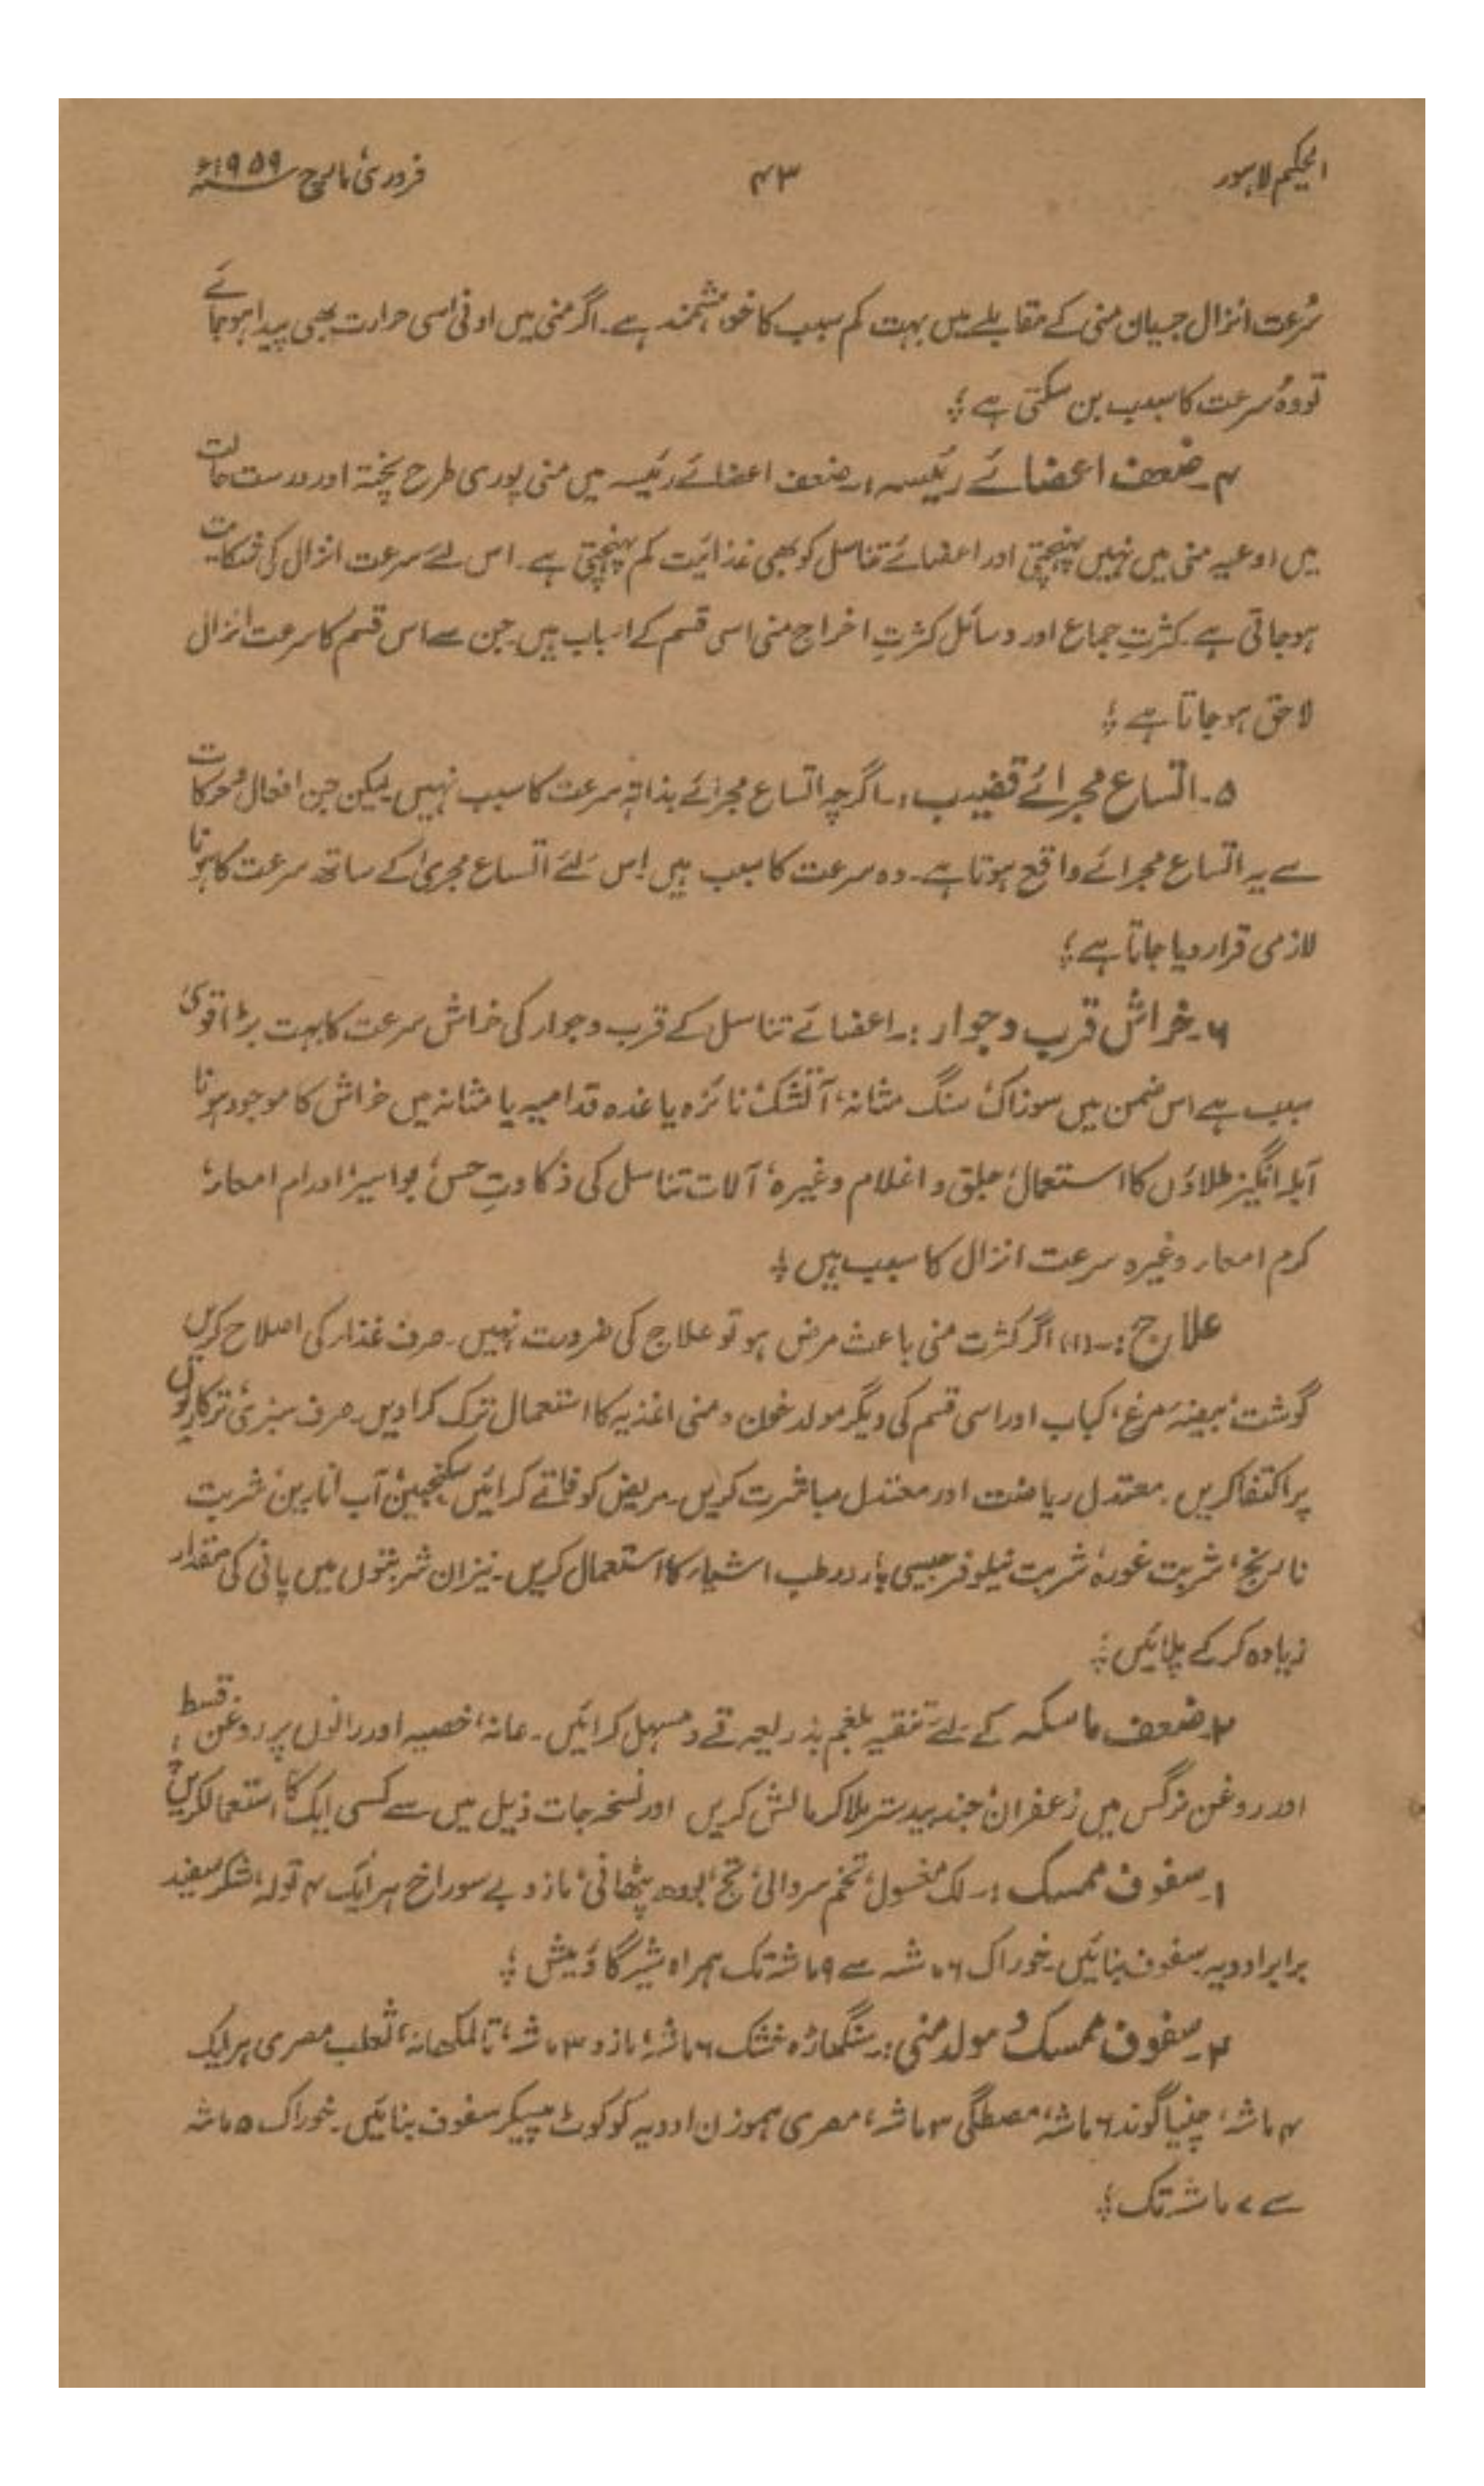 الحکیم لاہور ۴۳ فروری مارچ ۱۹۵۹ء
سُرعت انزال جریان منی کے مقابلے میں بہت کم سبب کا خواہشمند ہے۔ اگر منی میں ادنیٰ سی حرارت بھی پیدا ہو جائے
تو وہ سرعت کا سبب بن سکتی ہے؛
۴۔ ضعف اعضائے رئیسہ:۔ ضعف اعضائے رئیسہ میں منی پوری طرح پختہ اور درست حالت
میں اوعیہ منی میں نہیں پہنچتی اور اعضائے تناسل کو بھی غذائیت کم پہنچتی ہے۔ اس لئے سرعت انزال کی شکایت
ہو جاتی ہے۔ کثرتِ جماع اور وسائل کثرتِ اخراج منی اسی قسم کے اسباب ہیں جن سے اس قسم کا سرعت انزال
لاحق ہو جاتا ہے؛
۵۔ اتساع مجرائے قضیب:۔ اگرچہ اتساع مجرائے بذاتہٖ سرعت کا سبب نہیں لیکن جن افعال و حرکات
سے یہ اتساع مجرائے واقع ہوتا ہے۔ وہ سرعت کا سبب ہیں اس لئے اتساع مجریٰ کے ساتھ سرعت کا ہونا
لازمی قرار دیا جاتا ہے؛
۶۔ خراش قرب و جوار:۔ اعضائے تناسل کے قرب و جوار کی خراش سرعت کا بہت بڑا قوی
سبب ہے اس ضمن میں سوزاک، سنگ مثانہ، آتشک، نائزہ یا غدہ قدامیہ یا مثانہ میں خراش کا موجود ہونا
آبلہ انگیز طلاؤں کا استعمال، جلق و اغلام وغیرہ، آلات تناسل کی ذکاوتِ حس، بواسیر، اورام امعاء،
کرم امعاء وغیرہ سرعت انزال کا سبب ہیں؛
علاج:۔ (۱) اگر کثرت منی باعث مرض ہو تو علاج کی ضرورت نہیں۔ صرف غذا کی اصلاح کریں
گوشت، بیضہ مرغ، کباب اور اسی قسم کی دیگر مولد خون و منی اغذیہ کا استعمال ترک کرا دیں۔ صرف سبزی، ترکاریوں
پر اکتفا کریں۔ معتدل ریاضت اور معتدل مباشرت کریں۔ مریض کو فاقے کرائیں سکنجبین، آب انارین، شربت
نارنج، شربت غورہ، شربت نیلوفر جیسی بارد رطب اشیاء کا استعمال کریں۔ نیز ان شربتوں میں پانی کی مقدار
زیادہ کر کے پلائیں؛
۲۔ ضعف ماسکہ کے لئے تنقیہ بلغم بذریعہ قے و مسہل کرائیں۔ عانہ، خصیہ اور رانوں پر روغن قسط
اور روغن نرگس میں زعفران، جند بیدستر ملا کر مالش کریں اور نسخہ جات ذیل میں سے کسی ایک کا استعمال کریں
۱۔ سفوف ممسک:۔ لک مغسول، تخم سروالی، تج، لودھ پٹھانی، مازو بے سوراخ ہر ایک ۴ تولہ، شکر سفید
برابر ادویہ سفوف بنائیں۔ خوراک ۶ ماشہ سے ۹ ماشہ تک ہمراہ شیر گاؤمیش؛
۲۔ سفوف ممسک و مولد منی:۔ سنگھاڑہ خشک ۶ ماشہ، مازو ۳ ماشہ، تالمکھانہ، ثعلب مصری ہر ایک
۴ ماشہ، چنیا گوند ۶ ماشہ، مصطگی ۳ ماشہ، مصری ہموزن ادویہ کو کوٹ پیسکر سفوف بنائیں۔ خوراک ۵ ماشہ
سے ۷ ماشہ تک؛